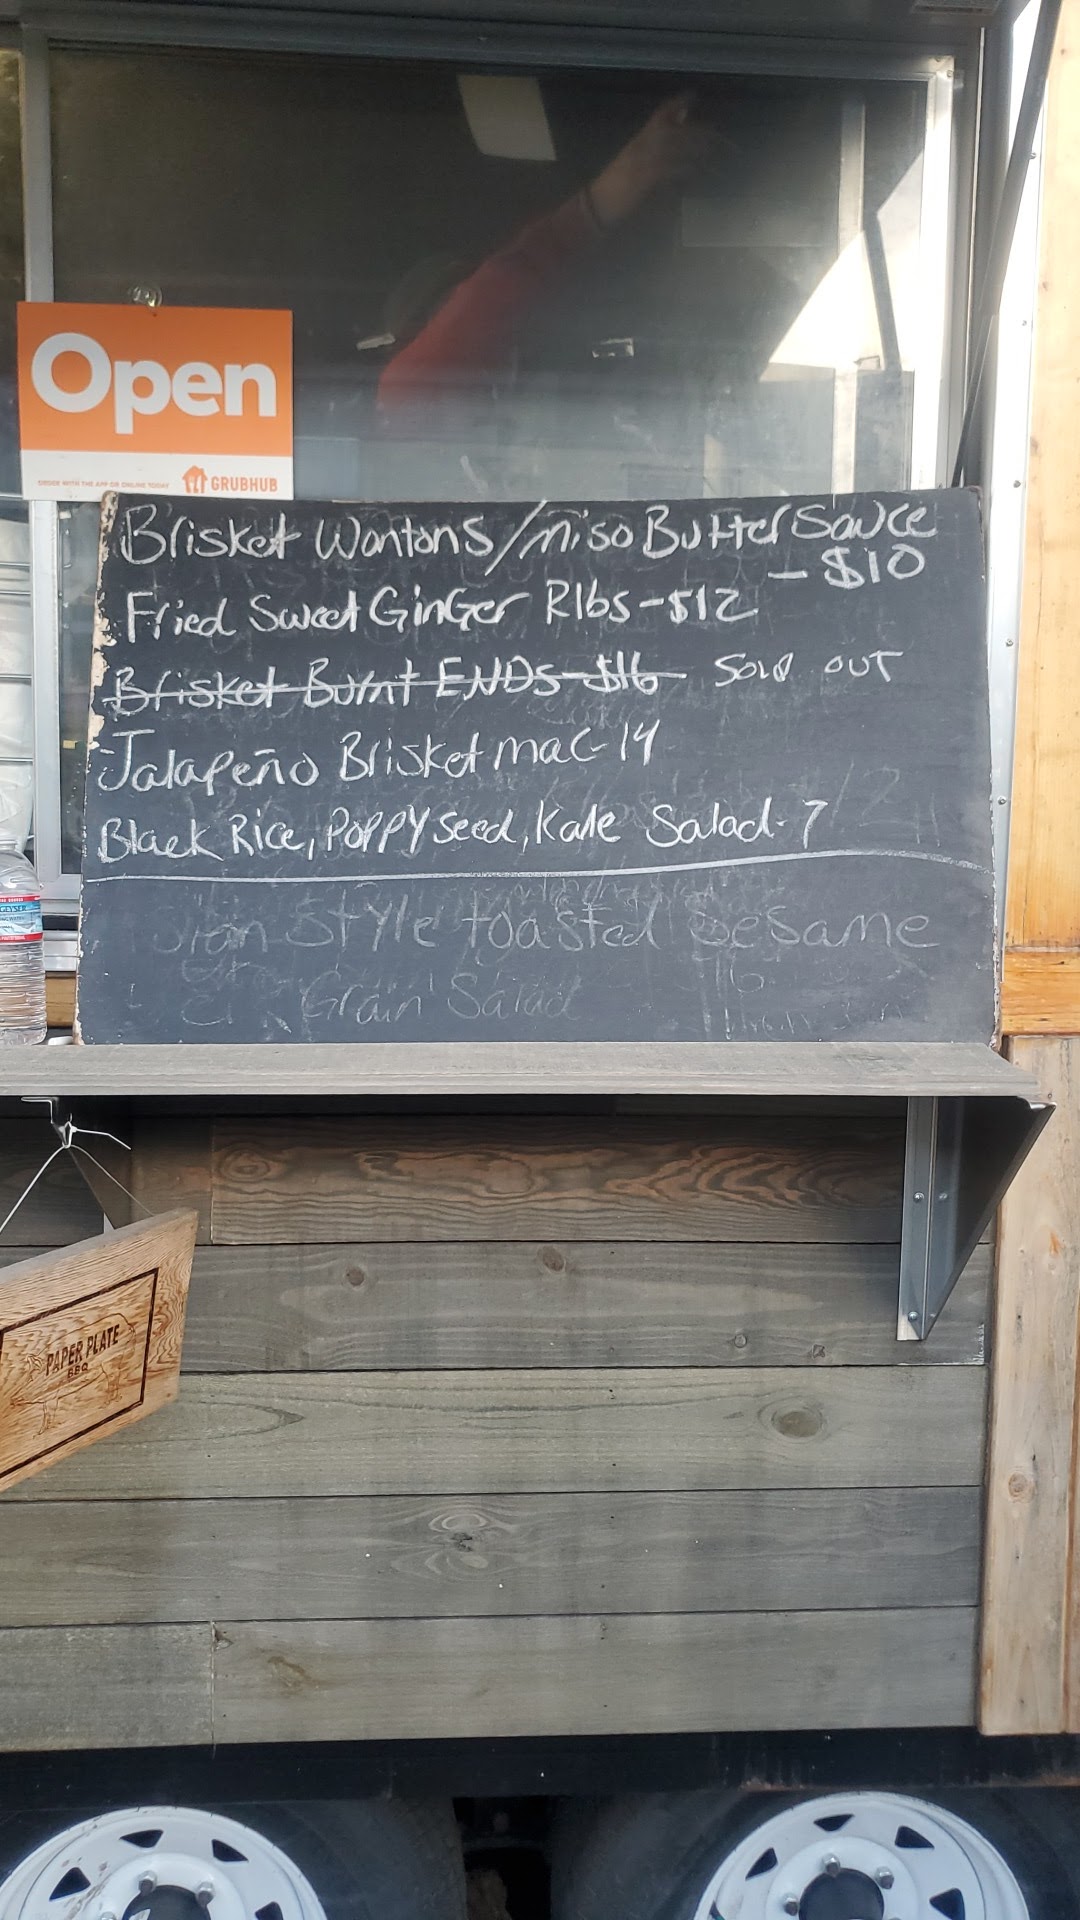 Open
ORDER WITH THE APP OR ONLINE TODAY GRUBHUB
Brisket Wontons/miso Butter Sauce
- $10
Fried Sweet GinGer RIbs - $12
Brisket Burnt ENDS - $16 SOLD OUT
Jalapeño Brisket mac - 14
Black Rice, Poppy seed, Kale Salad - 7
Style toasted Sesame
Grain Salad
PAPER PLATE
BBQ